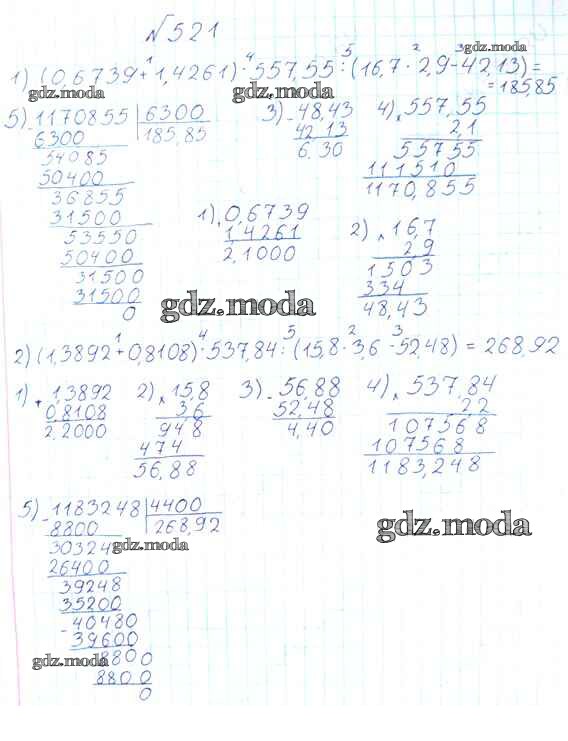 №521
1) (0,6739+1,4261)·557,55:(16,7·2,9-42,13)=
1 4 5 2 3
=185,85
gdz.moda
gdz.moda
gdz.moda
5) -1170855 | 6300
6300 | 185,85
54085
50400
36855
31500
53550
50400
31500
31500
0
3) -48,43
42 13
6,30
4) × 557,55
2,1
55755
111510
1170,855
1) +0,6739
1,4261
2,1000
2) × 16,7
2,9
1503
334
48,43
gdz.moda
2) (1,3892+0,8108)·537,84:(15,8·3,6-52,48) = 268,92
1 4 5 2 3
1) +1,3892
0,8108
2,2000
2) × 15,8
3,6
948
474
56,88
3) -56,88
52,48
4,40
4) × 537,84
2,2
107568
107568
1183,248
5) -1183248 | 4400
8800 | 268,92
30324
26400
39248
35200
-40480
39600
8800
8800
0
gdz.moda
gdz.moda
gdz.moda